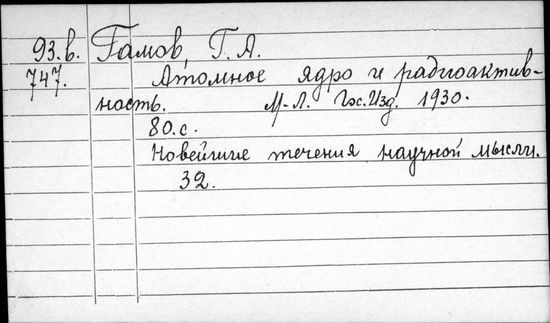 93.в. Гамов, Г. А.
747. Атомное ядро и радиоактив-
ность. М-Л. Гос.Изд. 1930.
80.с.
Новейшие течения научной мысли.
32.